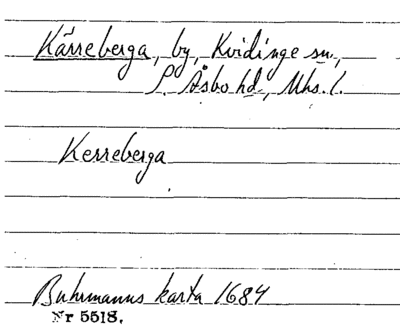 Kärreberga, by, Kvidinge sn.,
S. Åsbo hd., Mhs. l.
Kerreberga
Buhrmanns karta 1684
Nr 5518.